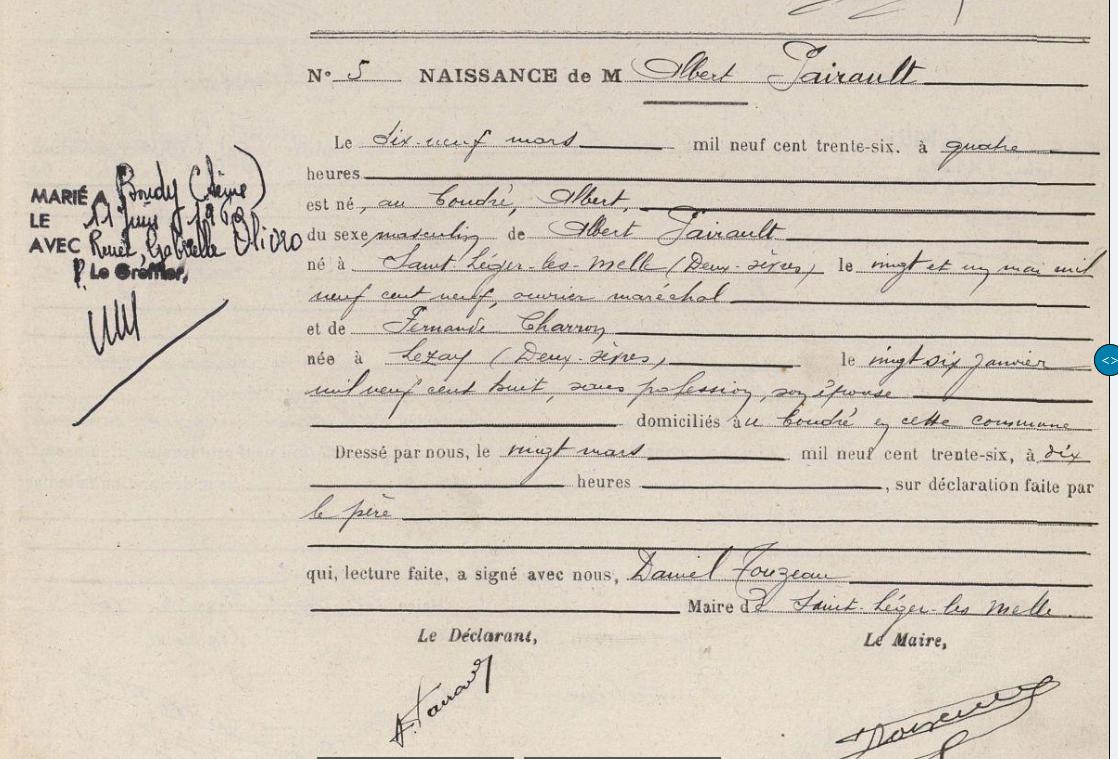 N° 5 NAISSANCE de M Albert Pairault
Le dix-neuf mars mil neuf cent trente-six, à quatre
heures
est né, au Coudré, Albert,
du sexe masculin de Albert Pairault
né à Saint-Léger-les-Melle (Deux-sèvres) le vingt et un mai mil
neuf cent neuf, ouvrier maréchal
et de Fernande Charron,
née à Lezay (Deux-sèvres, le vingt six janvier
mil neuf cent huit, sans profession, son épouse
domiciliés au Coudré en cette commune
Dressé par nous, le vingt mars mil neuf cent trente-six, à dix
heures , sur déclaration faite par
le père
qui, lecture faite, a signé avec nous, Daniel Touzeau
Maire de Saint-Léger-les Melle
Le Déclarant, Le Maire,
MARIÉ A Bondy (Seine)
LE 11 Juin
AVEC Renée, Gabrielle
P. Le Greffier,